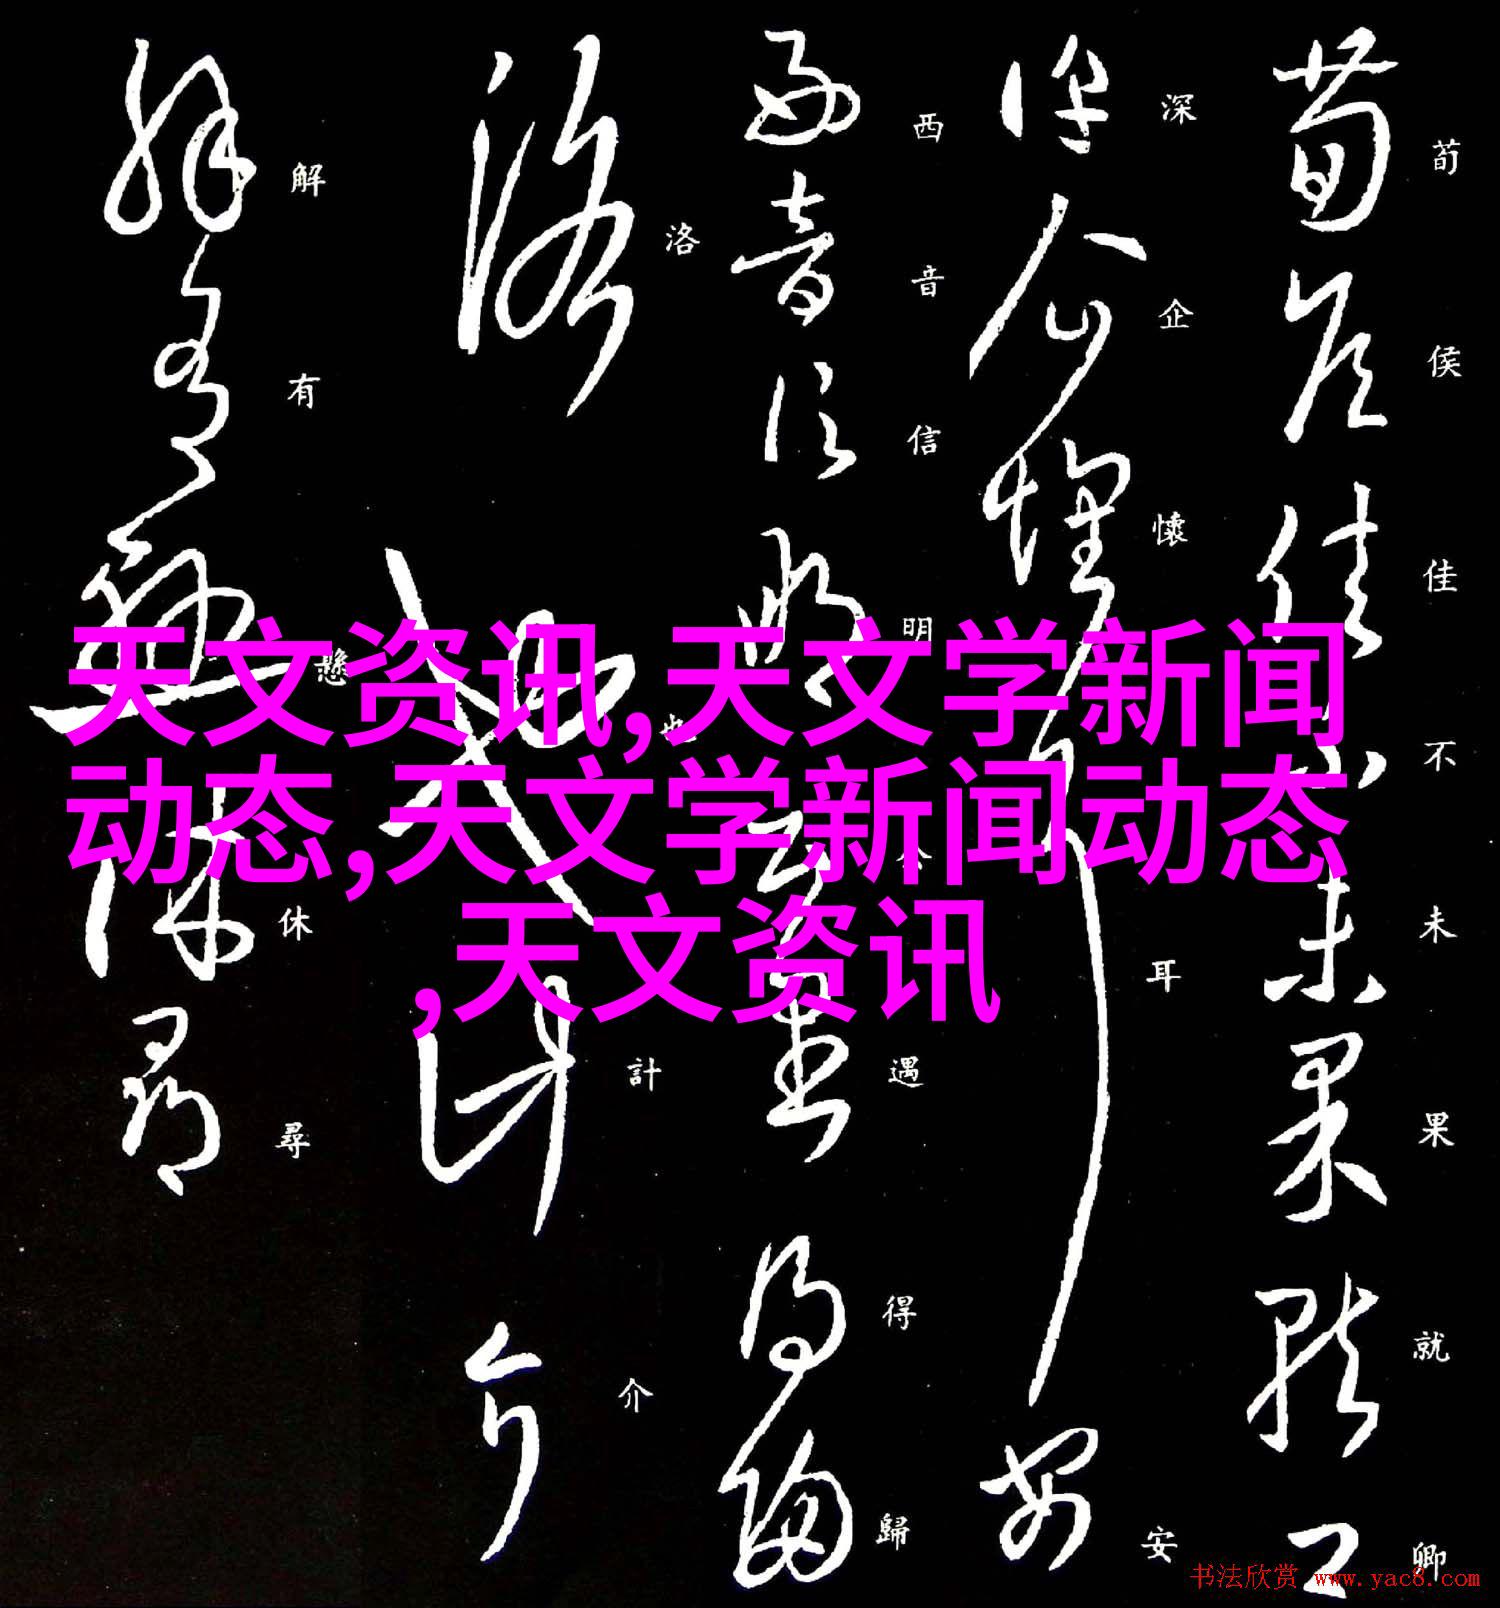 荀侯佳不未果就卿
深企懷耳安
西音信明今遇得歸
洛也計介
解有懸休尋
天文资讯,天文学新闻
动态,天文学新闻动态
,天文资讯
书法欣赏 www.yac8.com